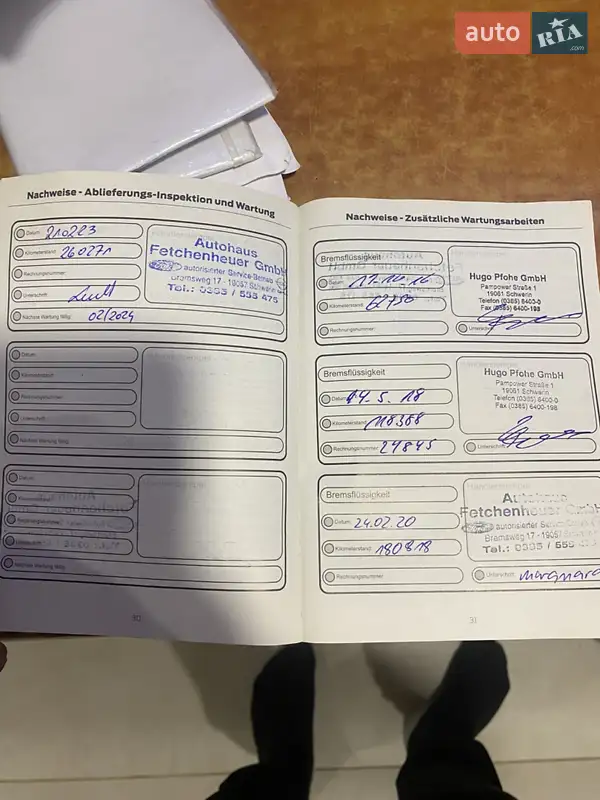 auto RIA .com
Nachweise - Ablieferungs-Inspektion und Wartung
Datum: 210223
Kilometerstand: 260271
Rechnungsnummer:
Unterschrift:
Nächste Wartung fällig: 02/2024
Autohaus
Fetchenheuer GmbH
autorisierter Service-Betrieb
Bremsweg 17 - 19057 Schwerin
Tel.: 0385 / 555 475
Datum:
Kilometerstand:
Rechnungsnummer:
Unterschrift:
Nächste Wartung fällig:
Datum:
Kilometerstand:
Rechnungsnummer:
Unterschrift:
Nächste Wartung fällig:
30
Nachweise - Zusätzliche Wartungsarbeiten
Bremsflüssigkeit
Datum:
Kilometerstand: 62750
Rechnungsnummer:
Hugo Pfohe GmbH
Pampower Straße 1
19061 Schwerin
Telefon (0385) 6400-0
Fax (0385) 6400-198
Unterschrift:
Bremsflüssigkeit
Datum: 14.5.18
Kilometerstand: 118388
Rechnungsnummer: 24845
Hugo Pfohe GmbH
Pampower Straße 1
19061 Schwerin
Telefon (0385) 6400-0
Fax (0385) 6400-198
Unterschrift:
Bremsflüssigkeit
Datum: 24.02.20
Kilometerstand: 180818
Rechnungsnummer:
Autohaus
Fetchenheuer GmbH
autorisierter Service
Bremsweg 17 - 19057
Tel.: 0385 / 555
Unterschrift:
31